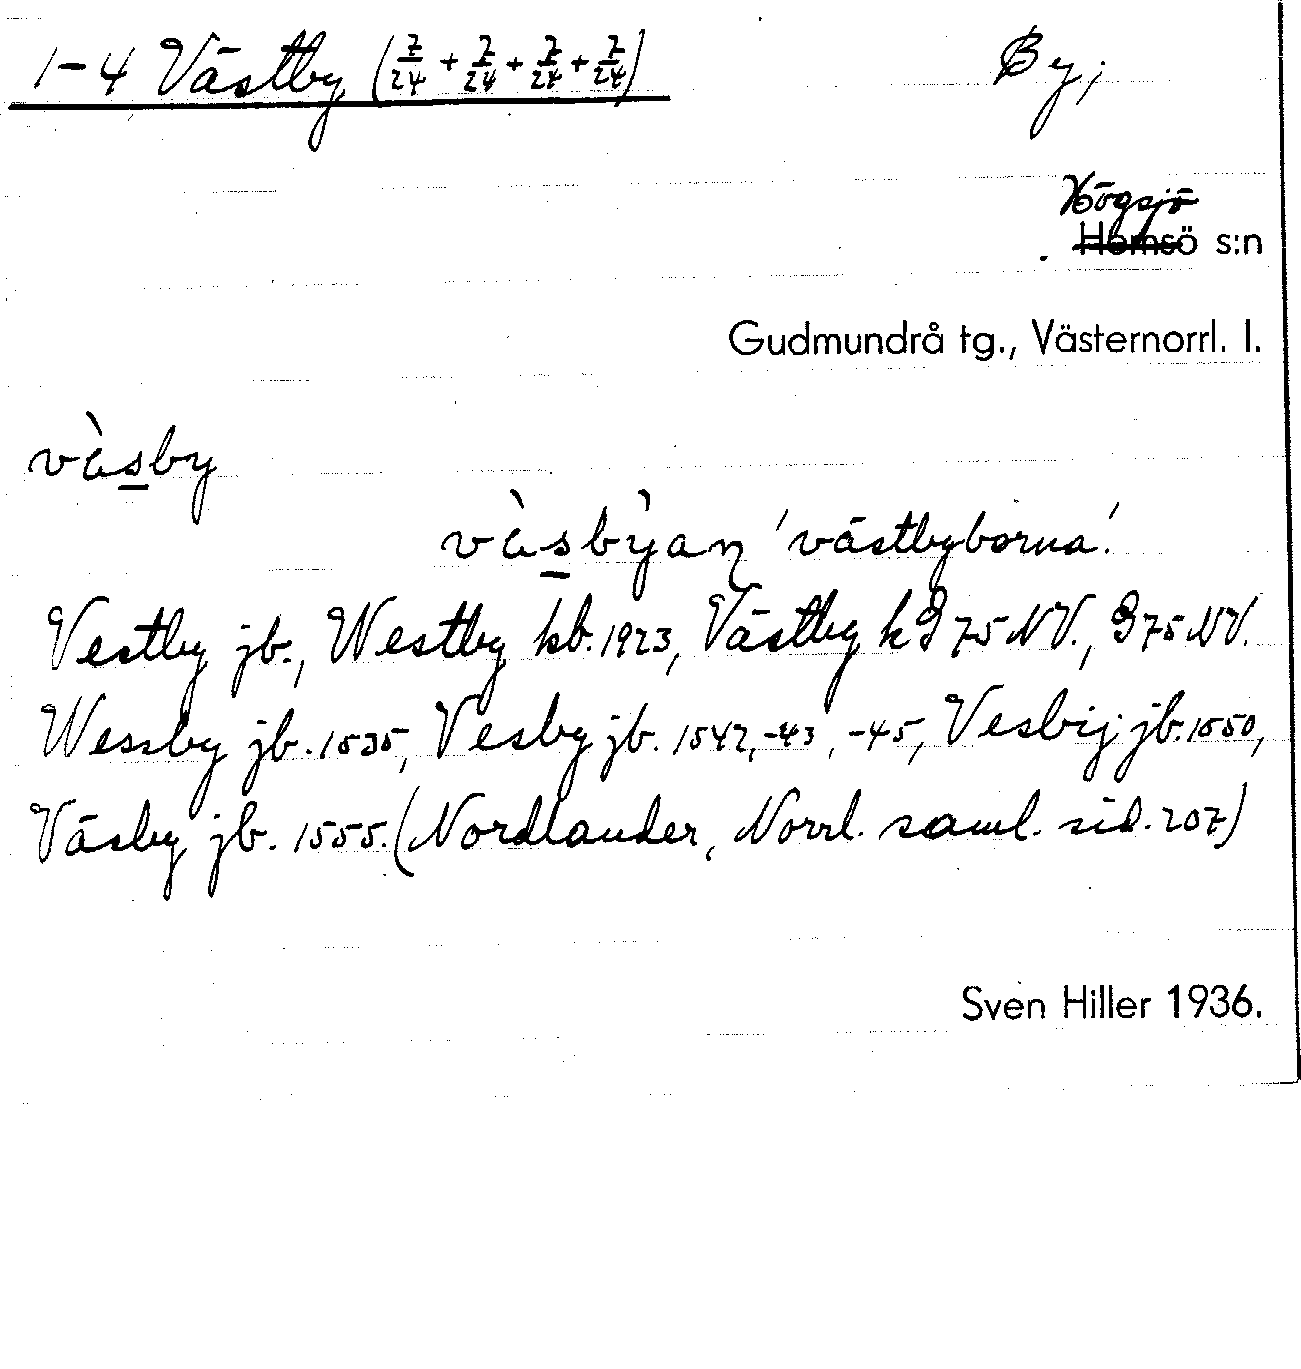 1-4 Västby (7/24 + 7/24 + 7/24 + 7/24) By;
Högsjö
Hemsö s:n
Gudmundrå tg., Västernorrl. l.
vàsby
vàsbỳaṇ 'västbyborna'.
Vestby jb., Westby kb. 1923, Västby k G 75 NV., G 75 NV.
Wessby jb. 1535, Vesby jb. 1542, -43, -45, Vesbij jb. 1550,
Väsby jb. 1555. (Nordlander, Norrl. saml. sid. 207)
Sven Hiller 1936.